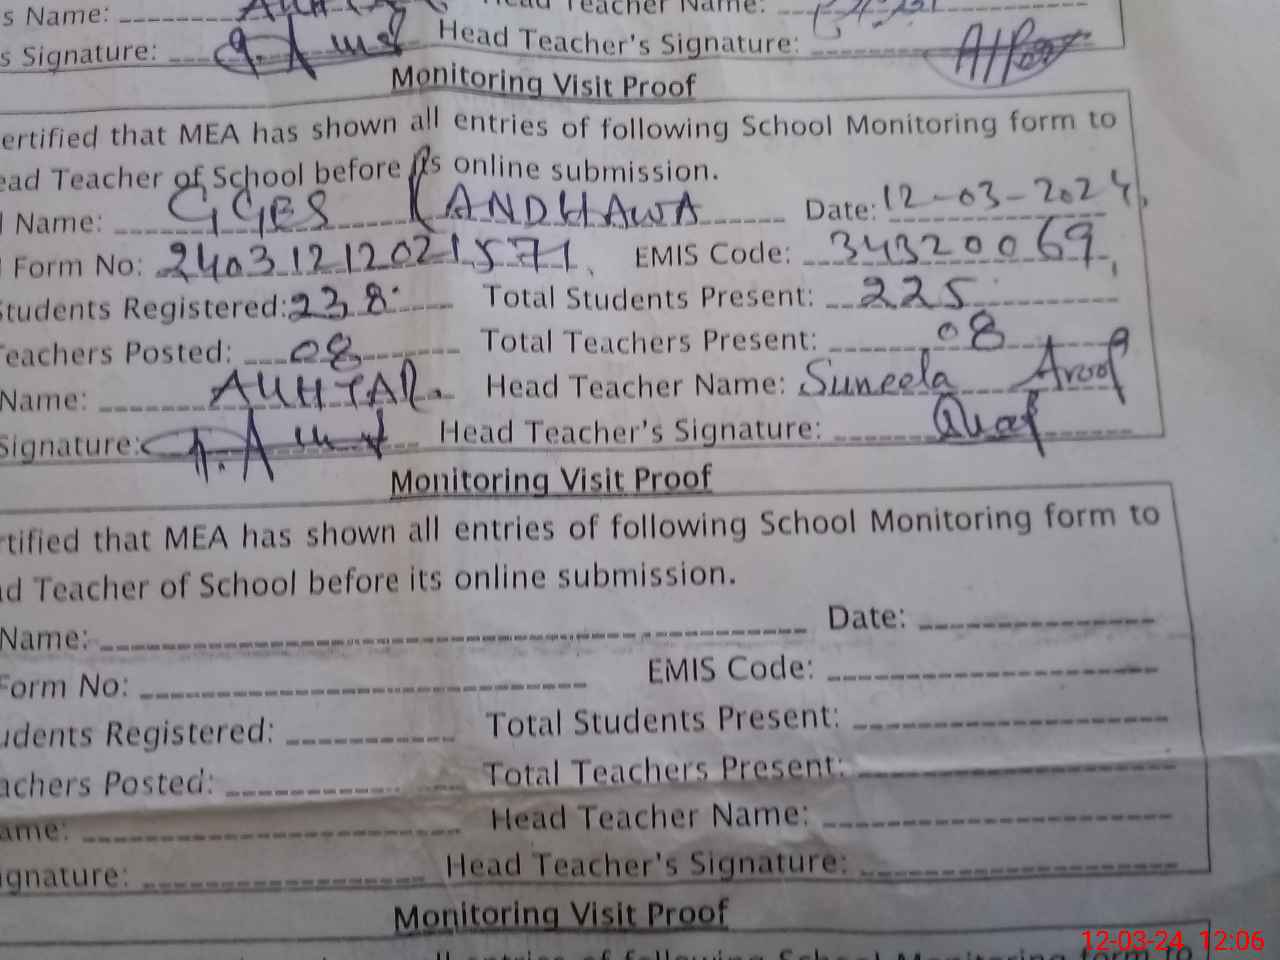 s Name: AUHTAR Head Teacher Name:
s Signature: Head Teacher's Signature:
Monitoring Visit Proof
ertified that MEA has shown all entries of following School Monitoring form to
ead Teacher of School before its online submission.
l Name: GGES KANDHAWA Date: 12-03-2024
l Form No: 24031212021571 EMIS Code: 34320069
Students Registered: 238 Total Students Present: 225
Teachers Posted: 08 Total Teachers Present: 08
Name: AUHTAR Head Teacher Name: Suneela Aroof
Signature: Head Teacher's Signature:
Monitoring Visit Proof
rtified that MEA has shown all entries of following School Monitoring form to
ad Teacher of School before its online submission.
Name: Date:
Form No: EMIS Code:
udents Registered: Total Students Present:
achers Posted: Total Teachers Present:
ame: Head Teacher Name:
ignature: Head Teacher's Signature:
Monitoring Visit Proof
all entries of following School Monitoring form to
12-03-24 12:06